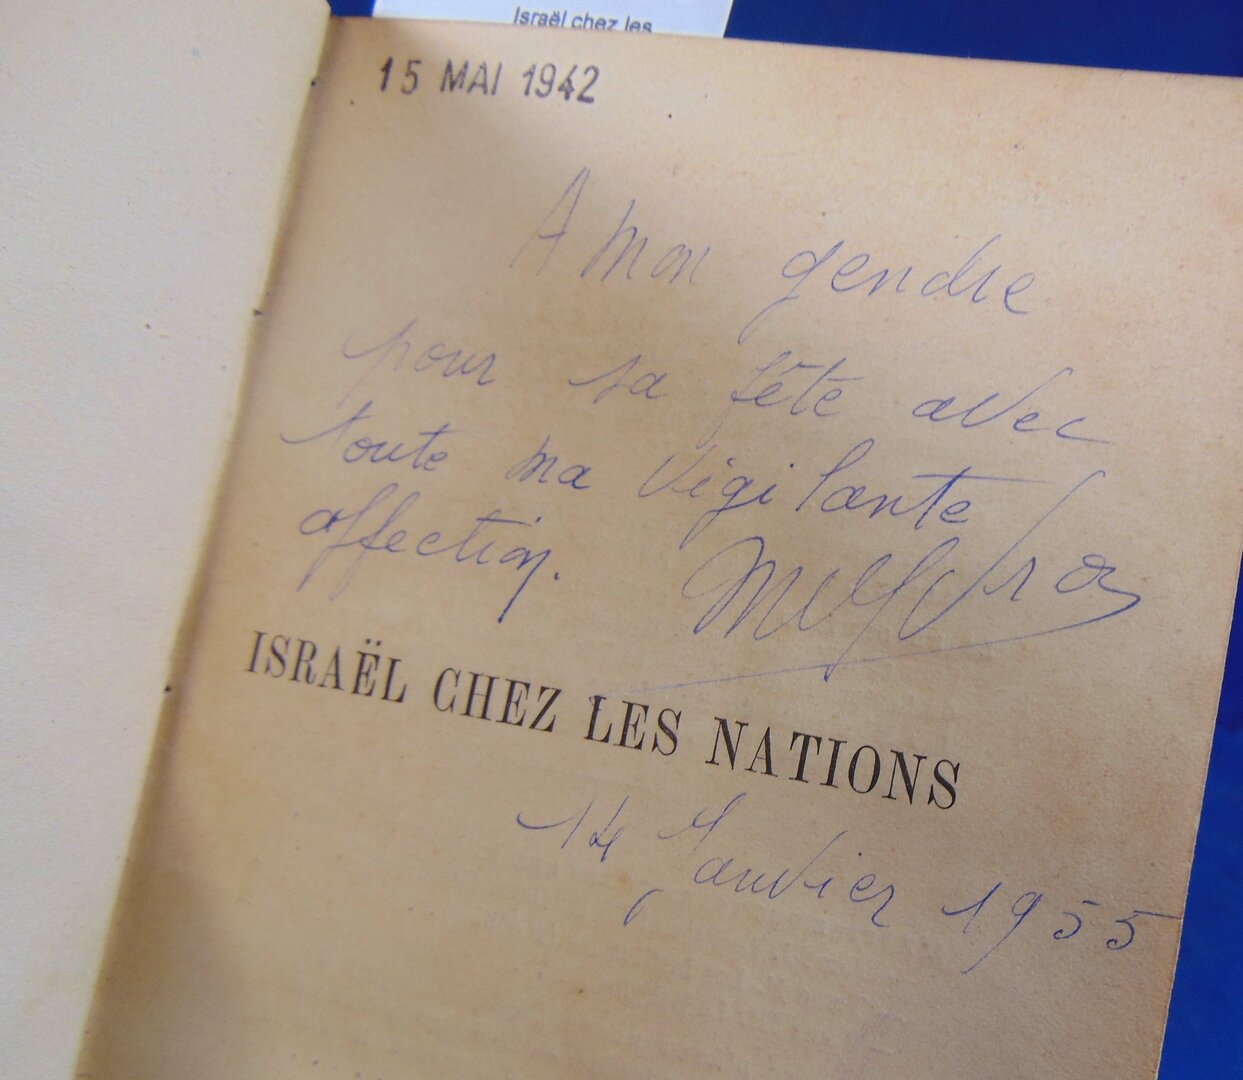 Israël chez les
15 MAI 1942
A mon gendre
pour sa fête avec
toute ma vigilante
affection.
ISRAËL CHEZ LES NATIONS
14 Janvier 1955